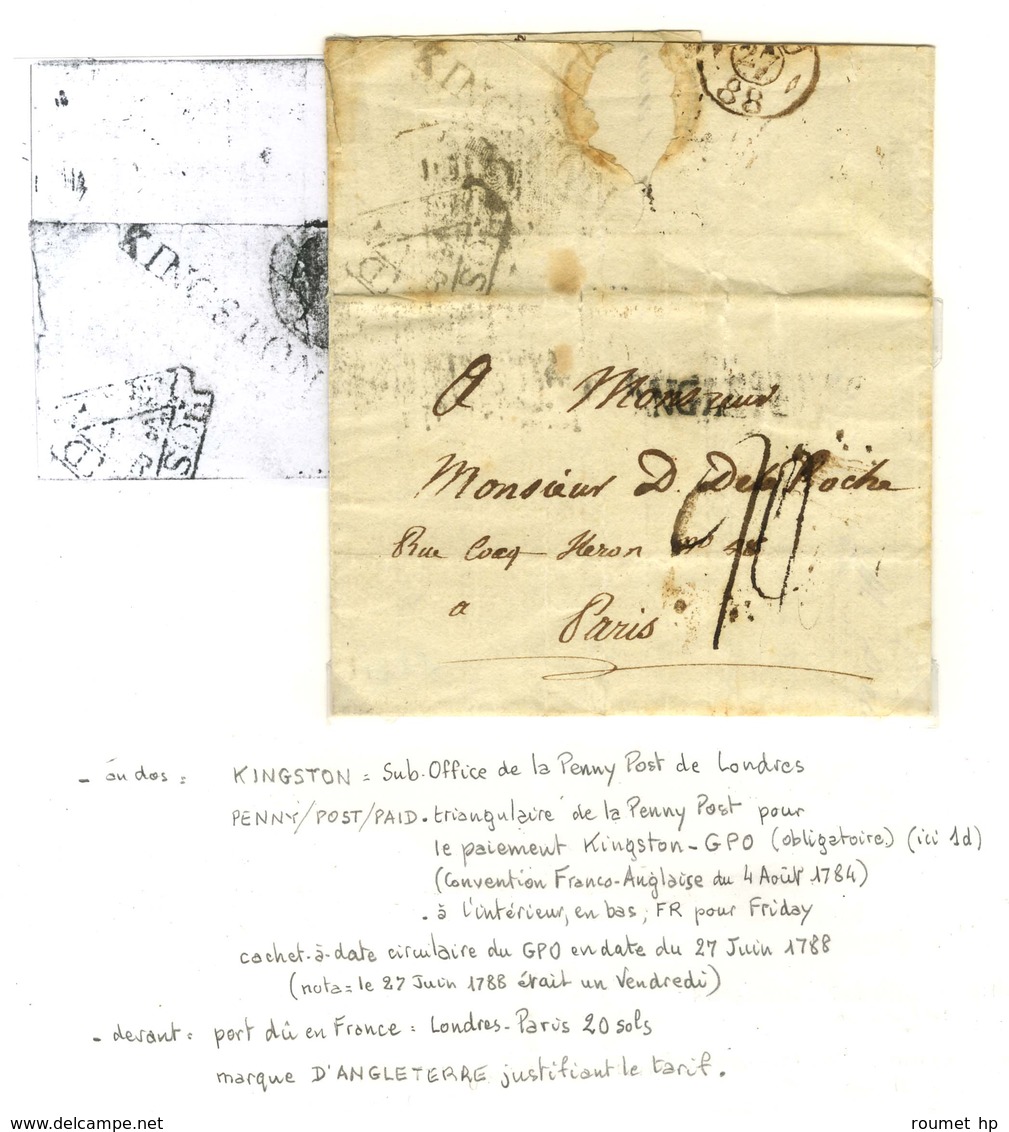 KINGSTON
27
88
KINGSTON
SOF
A Monsieur
ANGLETERRE
Monsieur D. Dela Roche
Rue Cocq Heron no 48
a
Paris
- au dos = KINGSTON = Sub-Office de la Penny Post de Londres
PENNY/POST/PAID. triangulaire de la Penny Post pour
le paiement Kingston-GPO (obligatoire) (ici 1d)
(Convention Franco-Anglaise du 4 Août 1784)
. à l'intérieur, en bas, FR pour Friday
cachet-à-date circulaire du GPO en date du 27 Juin 1788
(nota = le 27 Juin 1788 était un Vendredi)
- devant = port dû en France = Londres-Paris 20 sols
marque D'ANGLETERRE justifiant le tarif.
www.delcampe.net
roumet hp